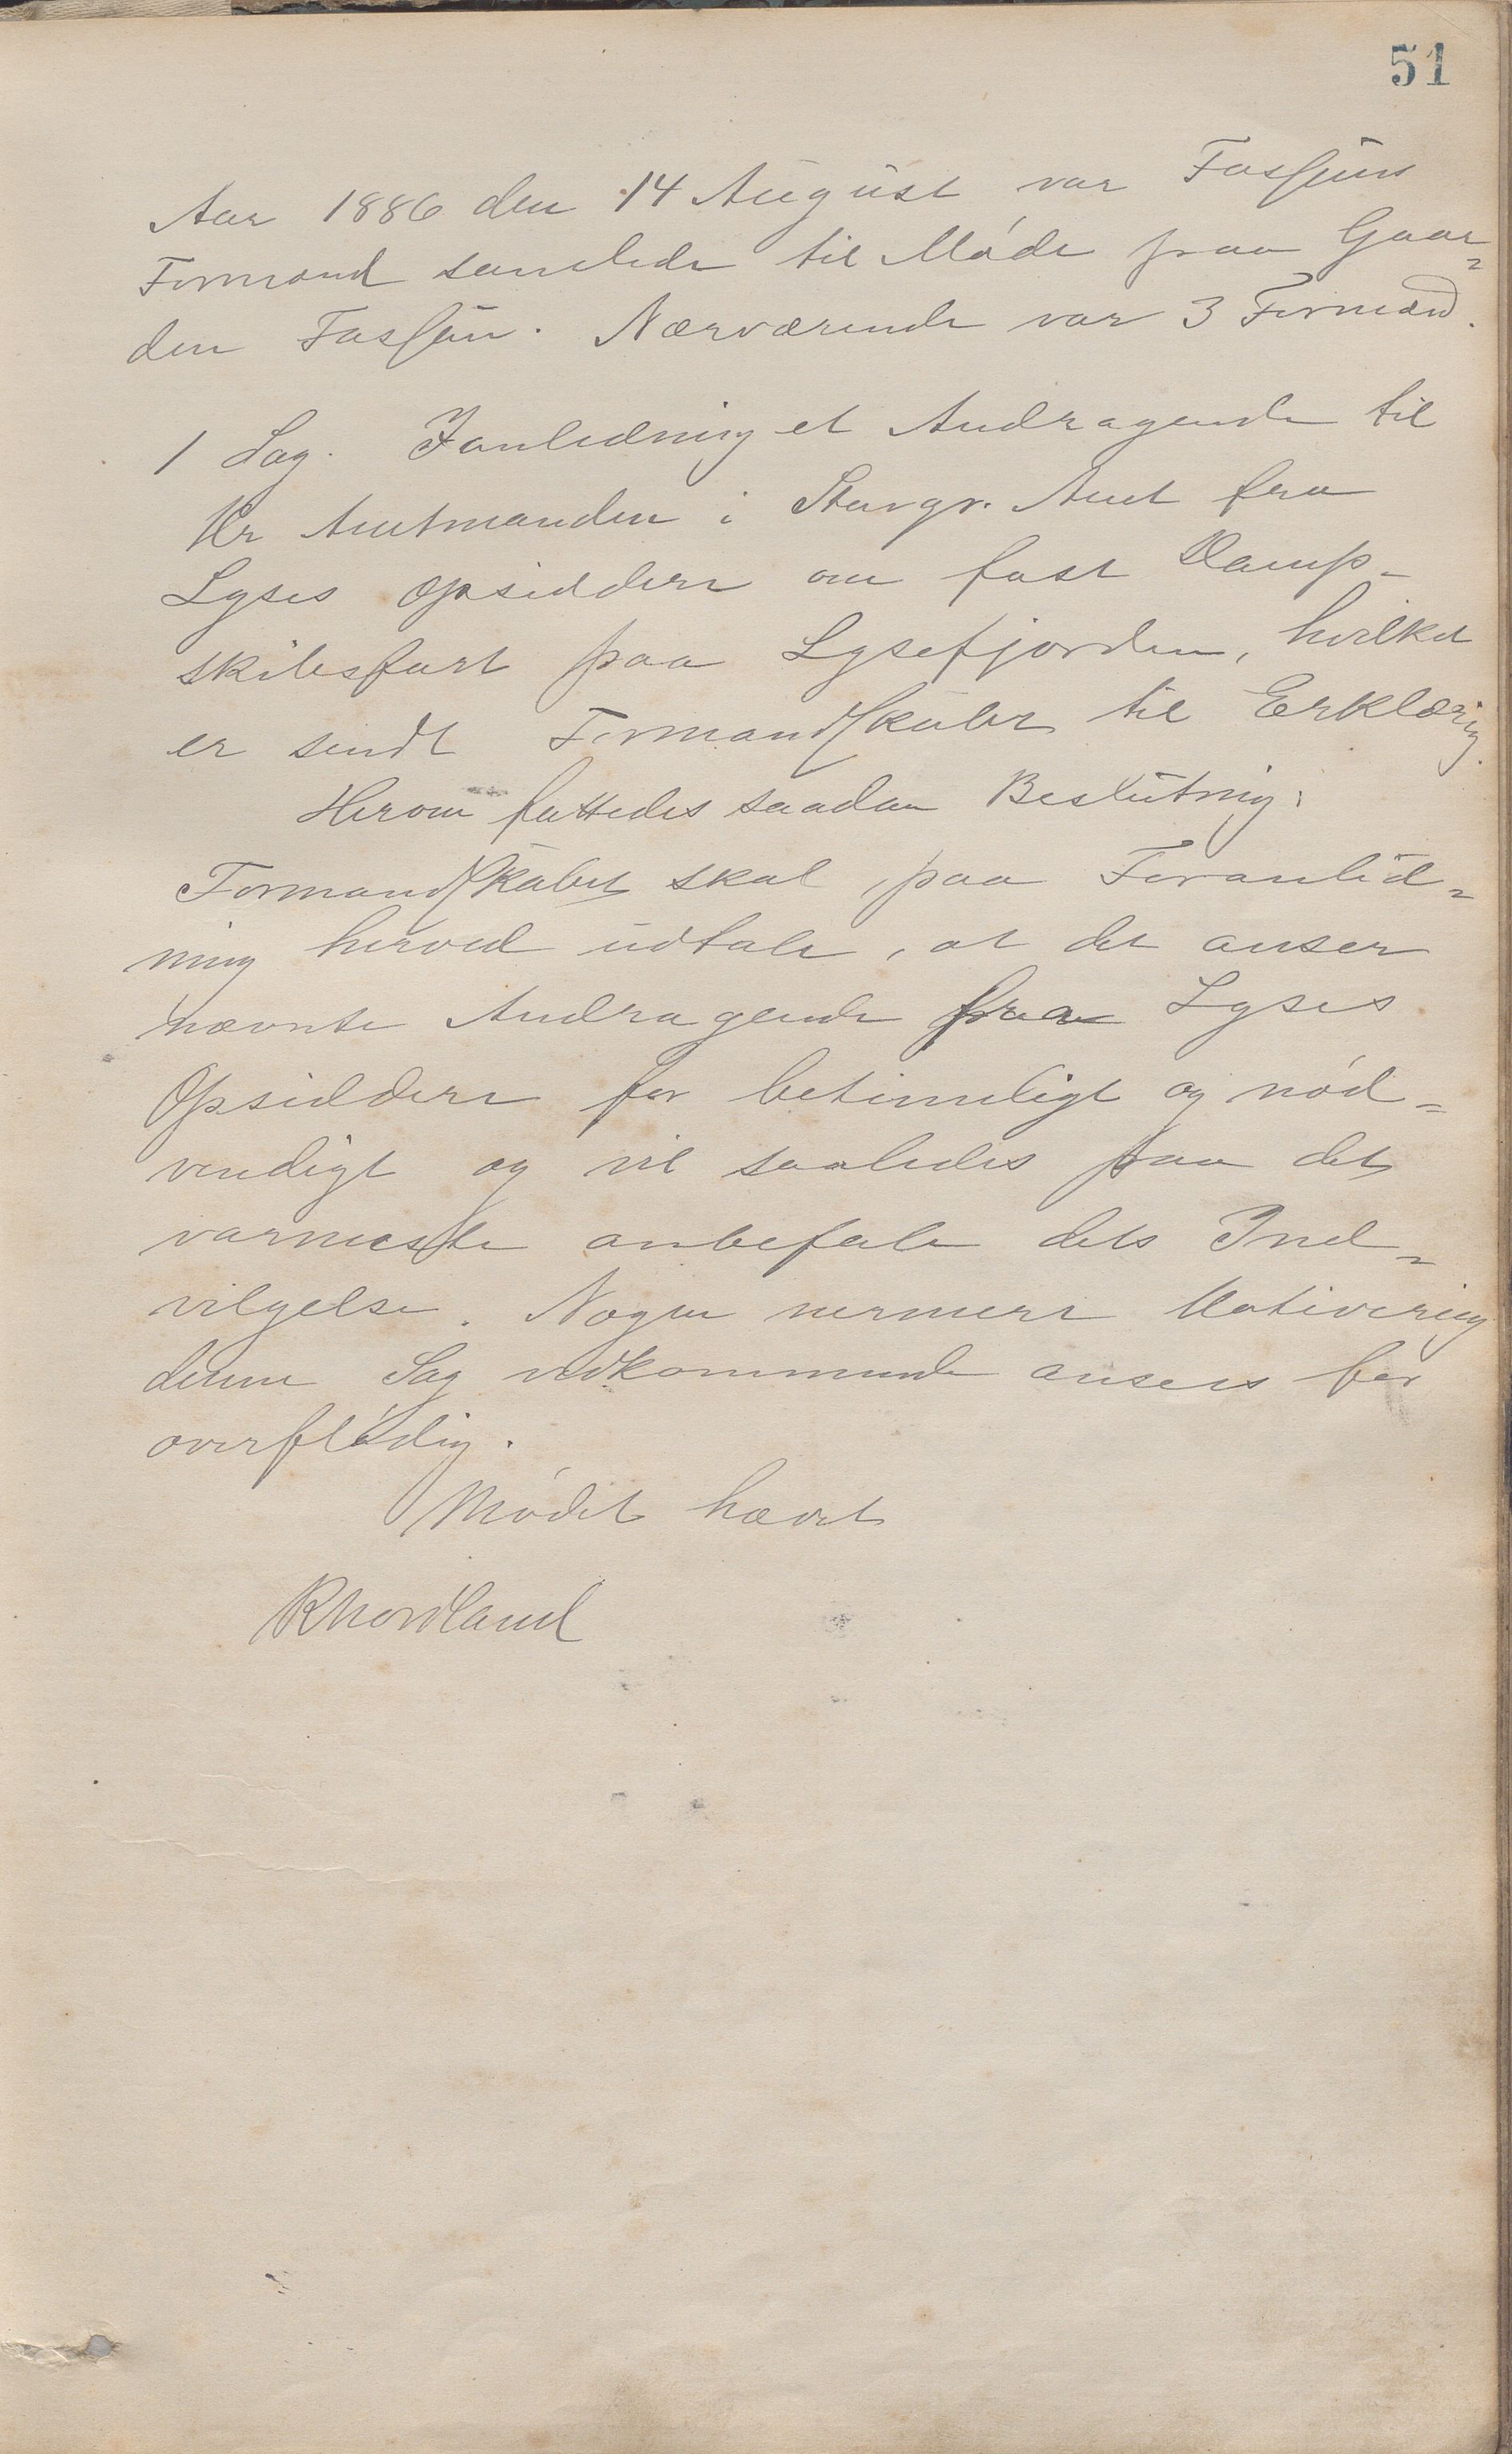 51
Aar 1886 den 14 August var Fossans
Formænd samlede til Møde paa Gaar=
den Fossan. Nærværende var 3 Formænd.
1 Sag. I anledning et Andragende til
Hr Amtmanden i Stavgr. Amt fra
Lyses Opsiddere om fast Damp-
skibsfart paa Lysefjorden, hvilket
er sendt Formandskabet til Erklæring.
Herom fattedes saadan Beslutning:
Formandskabet skal paa Foranled=
ning herved udtale, at det anser
nævnte Andragende fra Lyses
Opsiddere for betimeligt og nød=
vendigt og vil saaledes paa det
varmeste anbefale dets Ind=
vilgelse. Nogen nermere Motivering
denne Sag vedkommende ansees for
overflødig.
Mødet hævet
R Nordland